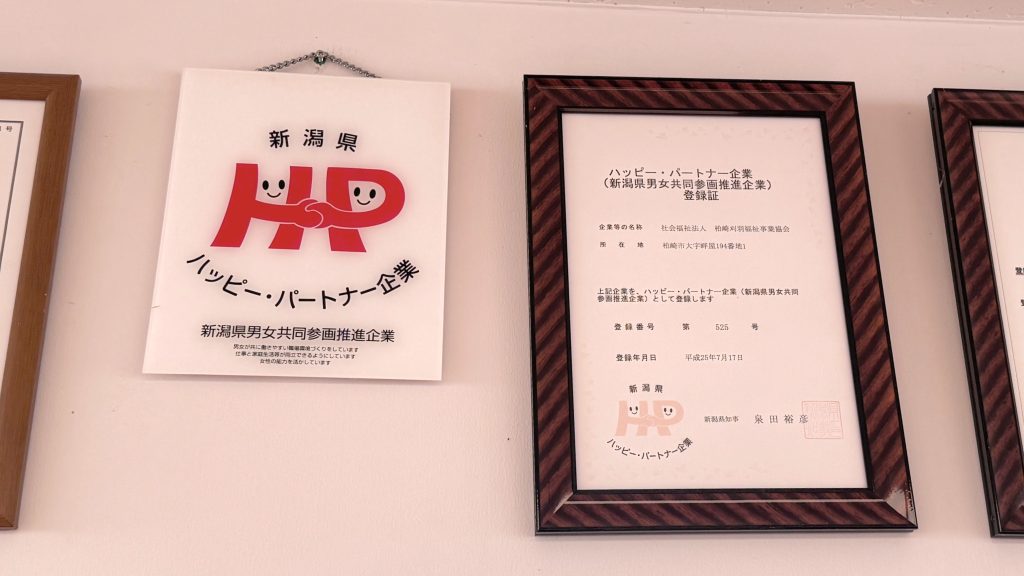 号
新潟県
HP
ハッピー・パートナー企業
新潟県男女共同参画推進企業
男女が共に働きやすい職場環境づくりをしています
仕事と家庭生活等が両立できるようにしています
女性の能力を活かしています
ハッピー・パートナー企業
（新潟県男女共同参画推進企業）
登録証
企業等の名称 社会福祉法人 柏崎刈羽福祉事業協会
所在地 柏崎市大字畔屋194番地1
上記企業を、ハッピー・パートナー企業（新潟県男女共同
参画推進企業）として登録します
登録番号 第 525 号
登録年月日 平成25年7月17日
新潟県
HP
ハッピー・パートナー企業
新潟県知事 泉田裕彦